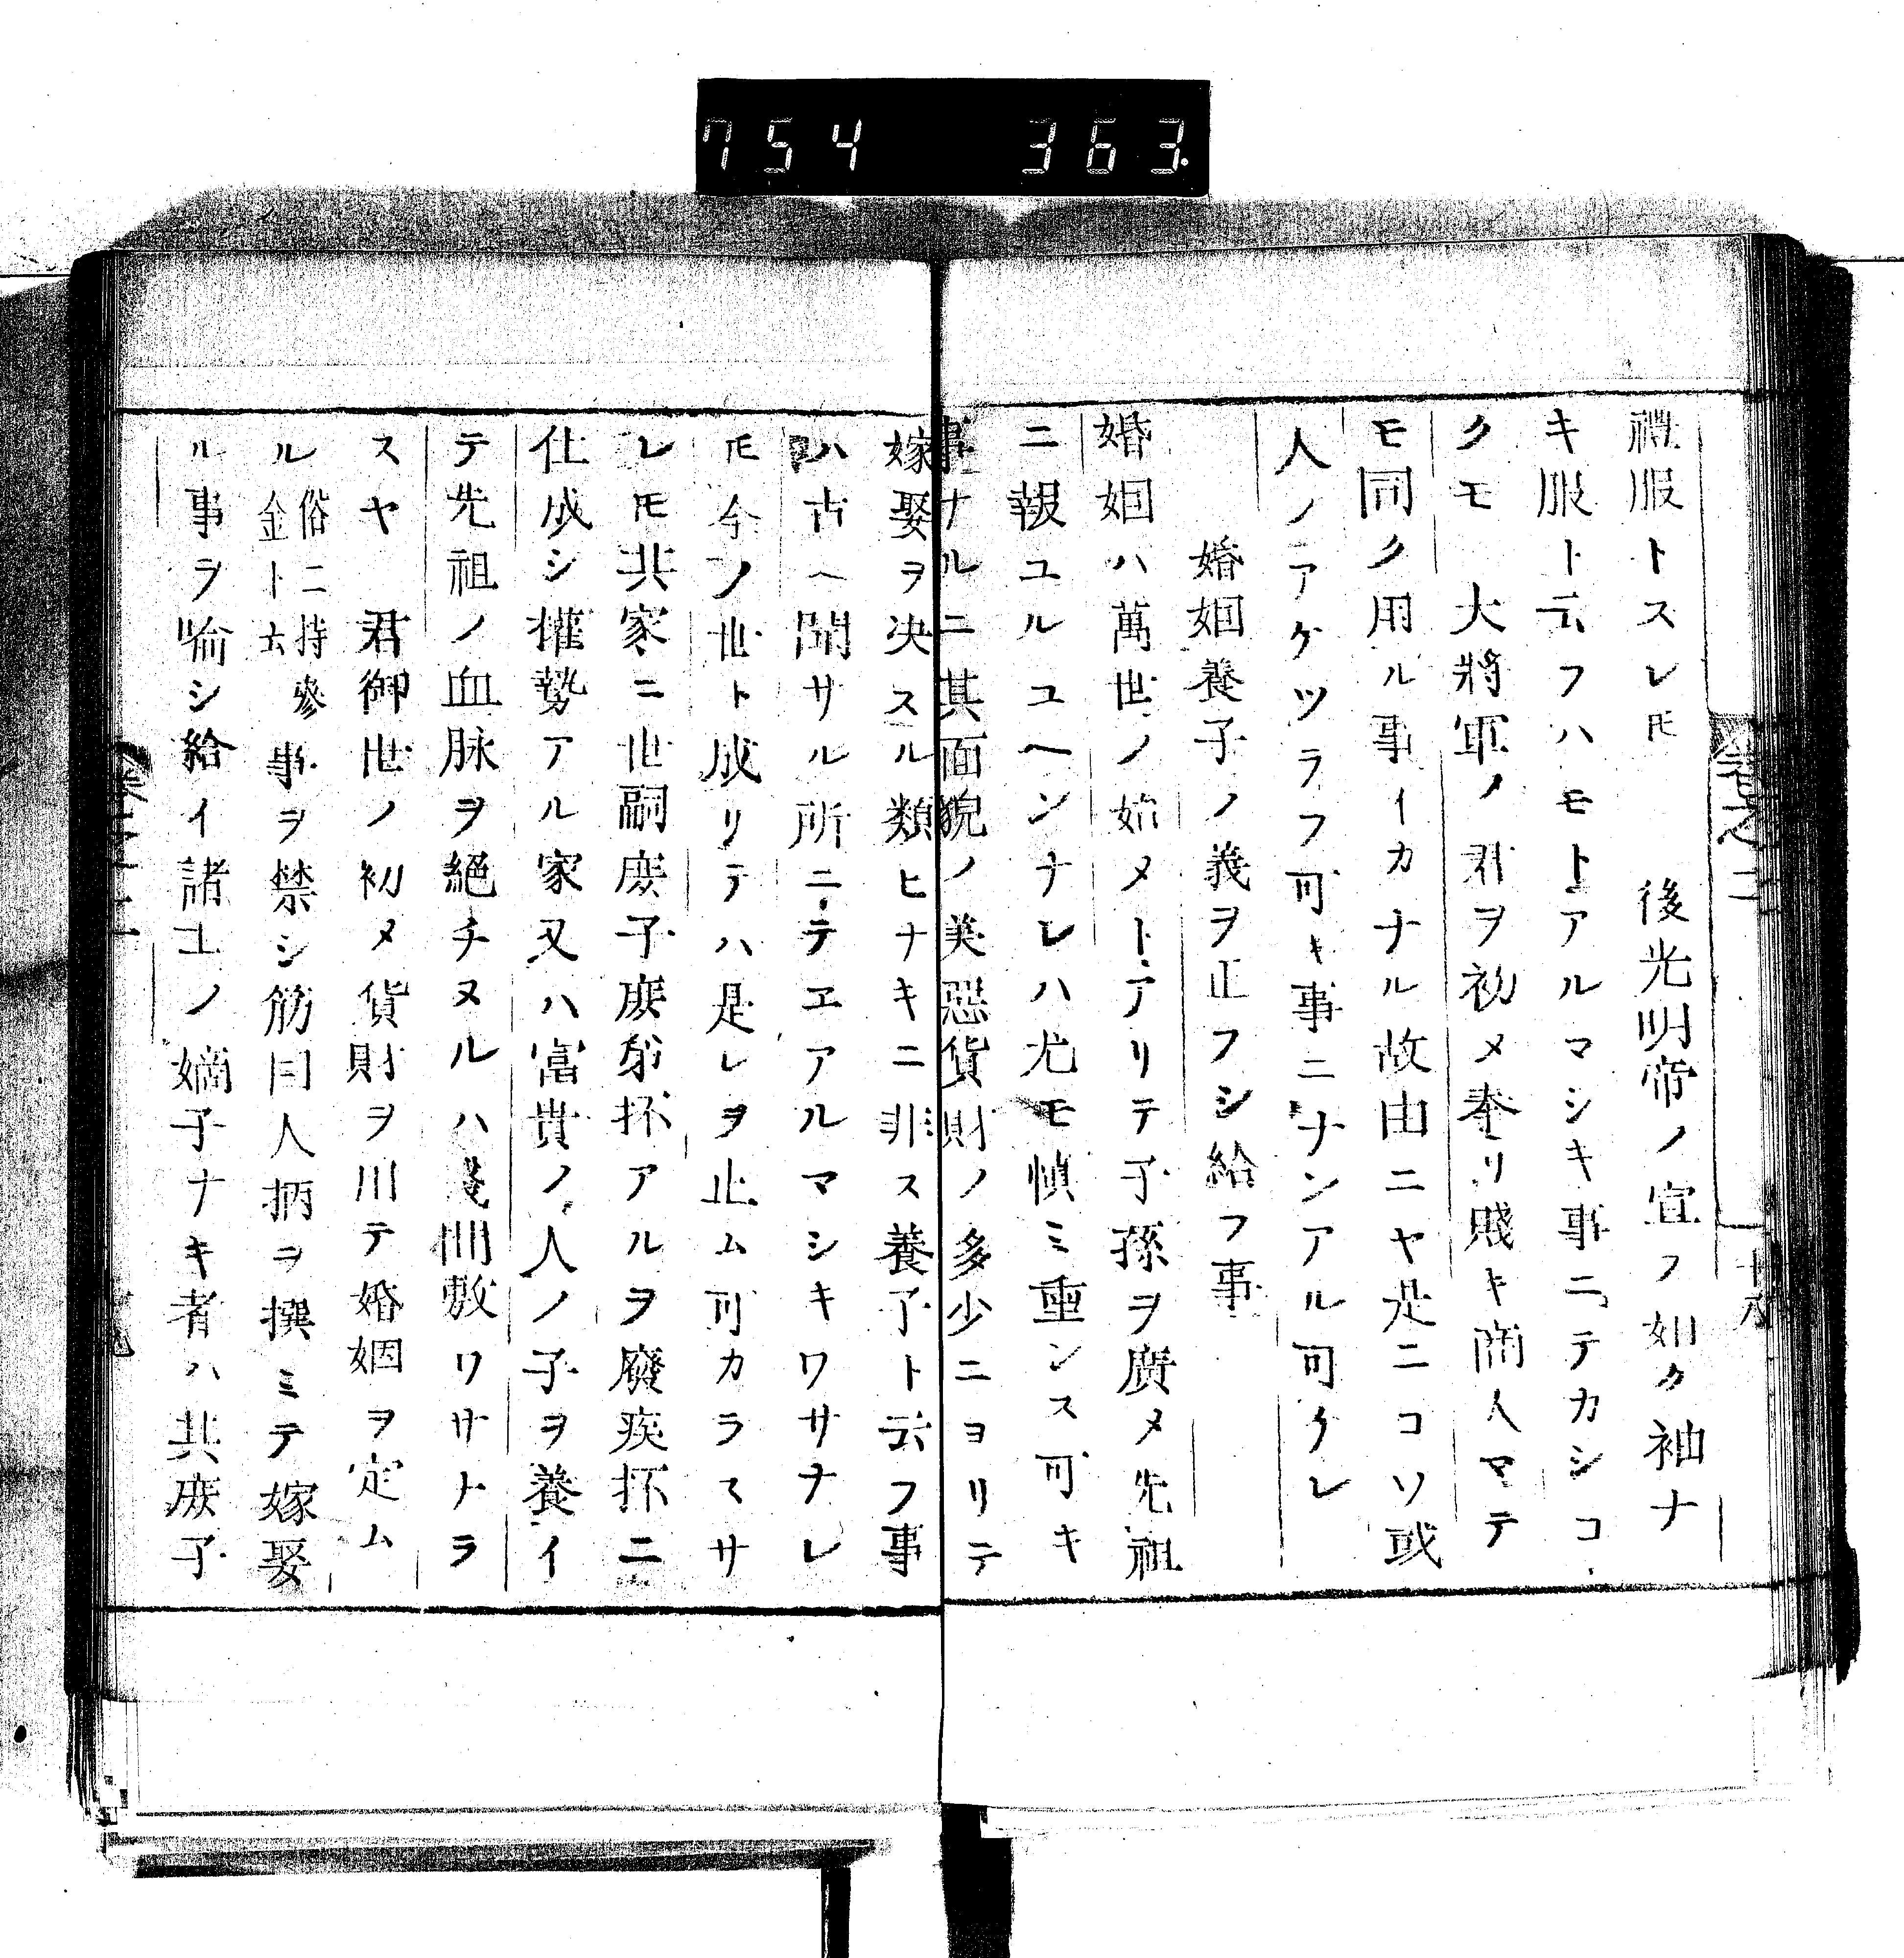 754 363.
禮服トスレ𪜈 後光明帝ノ宣フ如ク袖ナ
キ服ト云フハモトアルマシキ事ニテカシコ
クモ 大將軍ノ君ヲ初メ奉リ賤キ商人マテ
モ同ク用ル事イカナル故由ニヤ是ニコソ或
人ノアケツラフ可キ事ニナンアル可クレ
婚姻養子ノ義ヲ正フシ給フ事
婚姻ハ萬世ノ始メトアリテ子孫ヲ廣メ先祖
ニ報ユルユヘンナレハ尤モ愼ミ重ンス可キ
事ナルニ其面貌ノ美惡貨財ノ多少ニヨリテ
嫁娶ヲ决スル類ヒナキニ非ス養子ト云フ事
ハ古ヘ聞サル所ニテヱアルマシキワサナレ
𪜈今ノ世ト成リテハ是レヲ止ム可カラスサ
レ𪜈其家ニ世嗣庻子庻弟抔アルヲ廢疾抔ニ
仕成シ權勢アル家又ハ富貴ノ人ノ子ヲ養イ
テ先祖ノ血脉ヲ絕チヌルハ淺間敷ワサトラ
スヤ 君御世ノ初メ貨財ヲ以テ婚姻ヲ定ム
ル俗ニ持參金ト云事ヲ禁シ筋目人柄ヲ撰ミテ嫁娶
ル事ヲ喻シ給イ諸士ノ嫡子ナキ者ハ其庻子